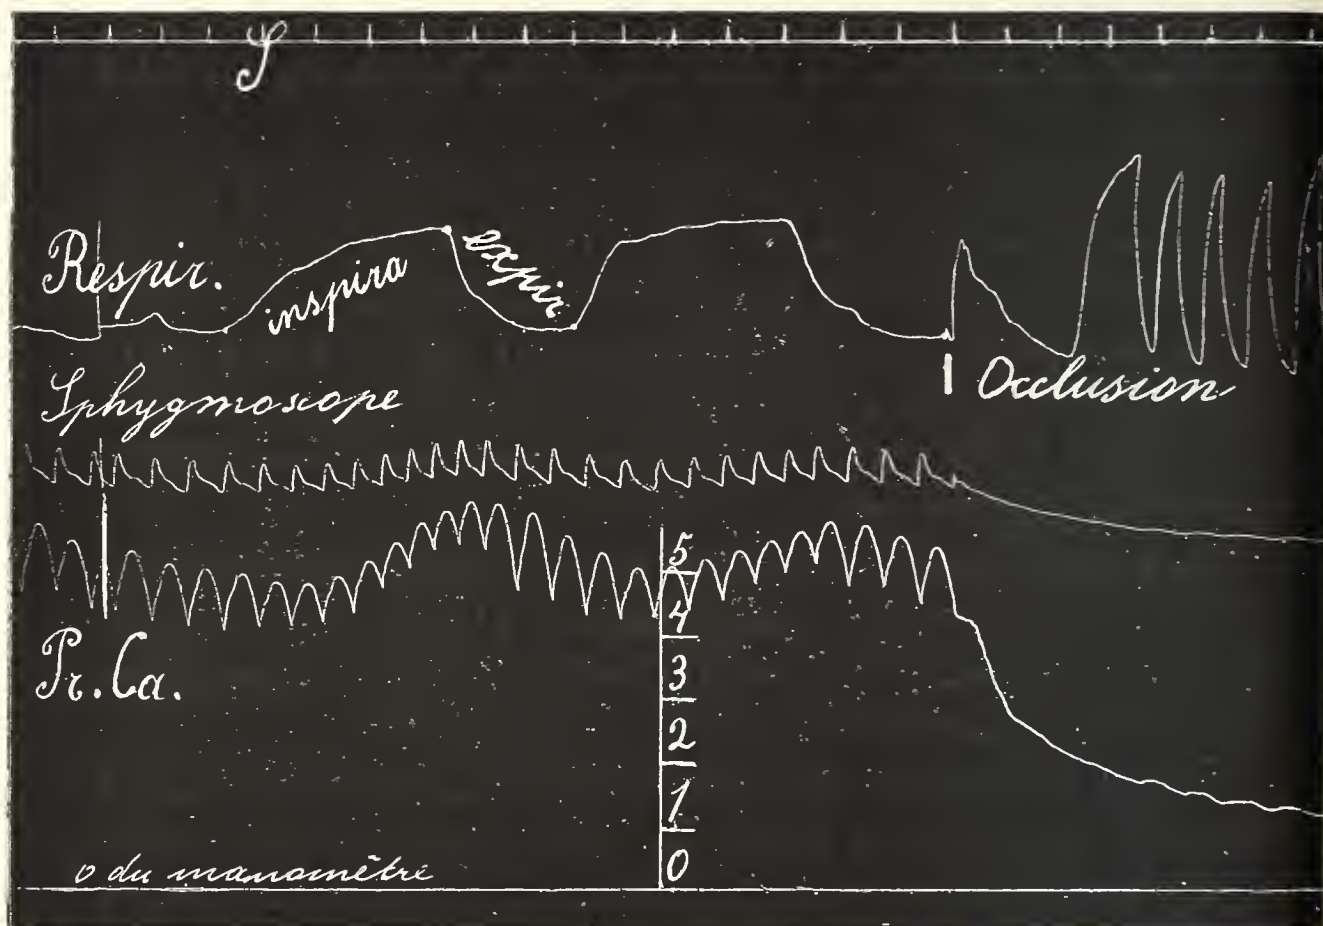 S
Respir.
inspira
expir
Occlusion
Sphygmoscope
Pr. Ca.
5
4
3
2
1
0
0 du manomètre